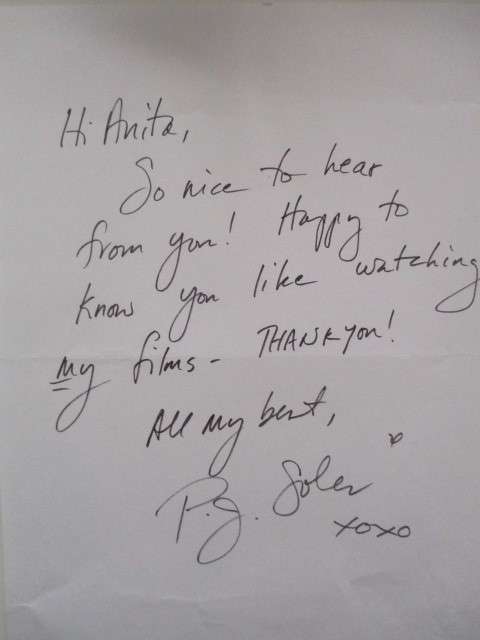 Hi Anita,
So nice to hear
from you! Happy to
know you like watching
my films - THANK you!
All my best,
P.J. Soles
xoxo